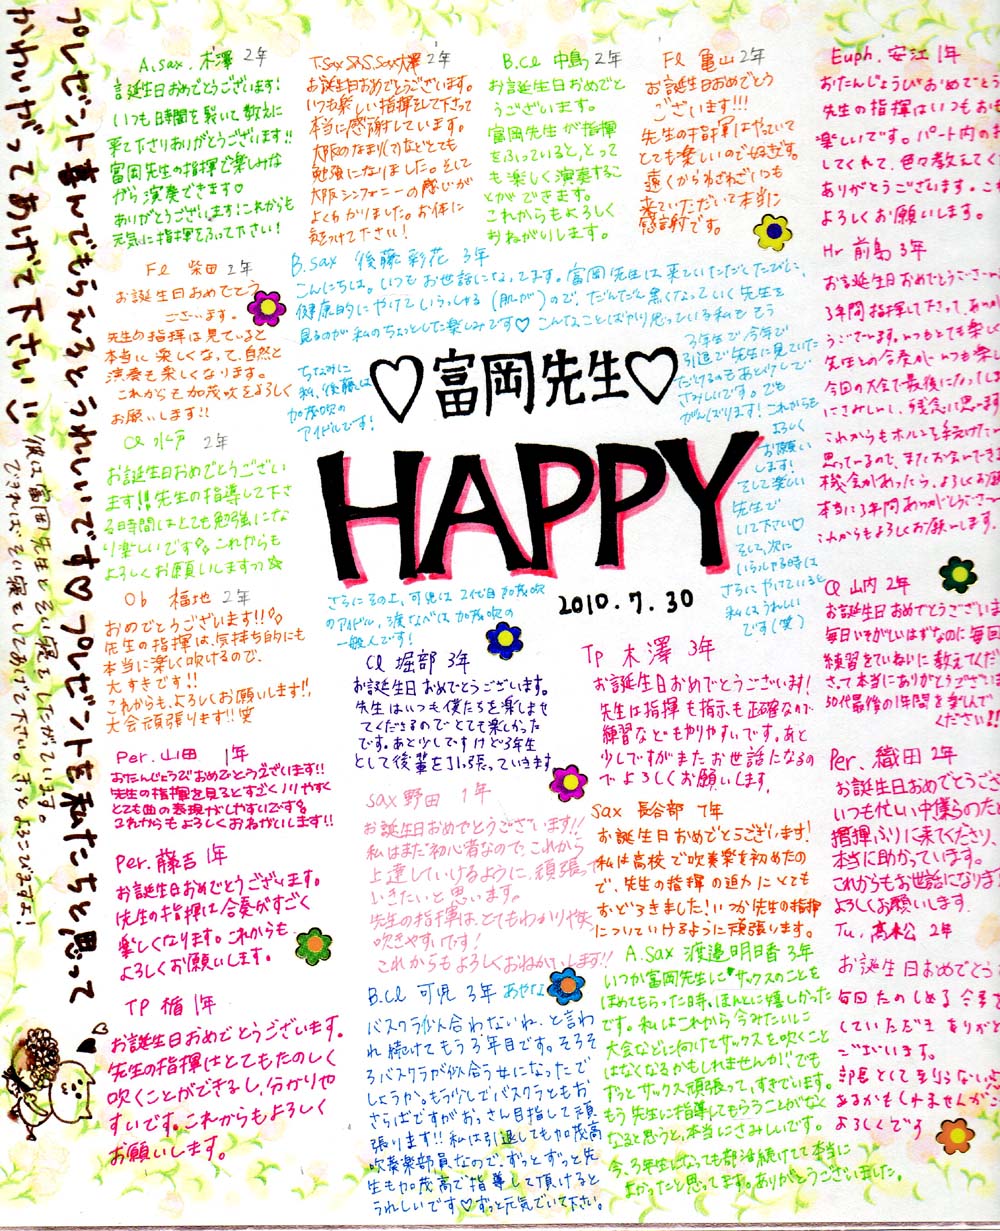 プレゼント喜んでもらえるとうれしいです♡プレゼントを私たちと思って
かわいがってあげて下さい
彼は富岡先生とそい寝をしたがっています。
できればそい寝をしてあげて下さい。きっとよろこびますよ！
A.Sax. 木澤 2年
お誕生日おめでとうございます!
いつも時間を裂いて教えに
来て下さりありがとうございます!!
富岡先生の指揮で楽しみな
がら演奏できます♡
ありがとうございます!これからも
元気に指揮をふって下さい!
T.Sax S.A.S.Sax 大澤 2年
お誕生日おめでとうございます。
いつも楽しい指揮をして下さって
本当に感謝しています。
大阪のなまり(?)などとても
勉強になりました。そして
大阪シンフォニーの感じが
よくわかりました。お体に
気をつけて下さい!
B.Cl 中島 2年
お誕生日おめでと
うございます。
富岡先生が指揮
をふっていると、とって
も楽しく演奏するこ
とができます。
これからもよろしく
おねがいします。
Fl 亀山 2年
お誕生日おめでとう
ございます!!!
先生の指揮はやっていて
とても楽しいので好きです。
遠くからわざわざいつも
来ていただいて本当に
感謝です。
Euph. 安江 1年
おたんじょうびおめでとう
先生の指揮はいつもお
楽しいです。パート内の
してくれて、色々教えてく
ありがとうございます。これ
よろしくお願いします。
Fl 柴田 2年
お誕生日おめでとう
ございます。
先生の指揮は見ていると
本当に楽しくなって、自然と
演奏も楽しくなります。
これからも加茂吹をよろしく
お願いします!!
B.Sax 後藤彩花 3年
こんにちは。いつもお世話になってます。富岡先生は来ていただくたびに、
健康的にやけていらっしゃる(肌が)ので、だんだん黒くなっていく先生を
見るのが私のちょっとした楽しみです♡こんなことばかり思っている私もとう
3年生で今年で
引退で先生に見ていた
だけるのもあと少しで
さみしいです。でも
がんばります!これからも
よろしく
お願い
します!
そして楽しい
先生で
いて下さい♡
そして、次に
いらっしゃる時は
さらにやけていると
私はうれしい
です(笑)
ちなみに
私、後藤は
加茂吹の
アイドルです!
さらにその上、可児は2代目加茂吹
のアイドル、渡なべは加茂吹の
一般人です!
♡富岡先生♡
HAPPY
2010.7.30
Hr 前島 3年
お誕生日おめでとうございま
3年間指揮して下さって、ありが
うございます。いつもとても楽し
先生との合奏がいつも楽し
今回の大会で最後になってしま
にさみしいし、残念に思います
これからもホルンを続けたい
思っているので、またお会いでき
機会があったら、よろしくお願
本当に3年間ありがとうございま
これからもよろしくお願いします。
Cl 水戸 2年
お誕生日おめでとうござい
ます!!先生の指導して下さ
る時間はとても勉強にな
り楽しいです。これからも
よろしくお願いしますっ☆
Ob 福地 2年
おめでとうございます!!
先生の指揮は、気持ち的にも
本当に楽しく吹けるので、
大すきです!!
これからも、よろしくお願いします!!
大会頑張ります!!笑
Cl 堀部 3年
お誕生日おめでとうございます。
先生はいつも僕たちを楽しませ
てくださるのでとても楽しかった
です。あと少しですけど3年生
として後輩を引っ張っていきます
Tp 木澤 3年
お誕生日おめでとうございます!
先生は指揮も指示も正確なので
練習などもやりやすいです。あと
少しですがまたお世話になるの
でよろしくお願いします。
Cl 山内 2年
お誕生日おめでとうございま
毎日いそがしいはずなのに毎回
練習をていねいに教えてくだ
さって本当にありがとうございま
50代最後の1年間を楽しんで
ください!!
Per. 山田 1年
おたんじょうびおめでとうございます!!
先生の指揮を見るとすごくノりやすく
とても曲の表現がしやすいです。
これからもよろしくおねがいします!!
Per. 藤吉 1年
お誕生日おめでとうございます。
先生の指揮は合奏がすごく
楽しくなります。これからも
よろしくお願いします。
Sax 野田 1年
お誕生日おめでとうございます!!
私はまだ初心者なので、これから
上達していけるように、頑張って
いきたいと思います。
先生の指揮は、とてもわかりやすく
吹きやすいです!
これからもよろしくおねがいします!!
Sax 長谷部 1年
お誕生日おめでとうございます!
私は高校で吹奏楽を初めたの
で、先生の指揮の迫力にとても
おどろきました!いつか先生の指揮
についていけるように頑張ります。
Per. 織田 2年
お誕生日おめでとうござ
いつも忙しい中僕らのた
指揮ふりに来てくださり、
本当に助かっています。
これからもお世話になりま
よろしくお願いします。
TP 楯 1年
お誕生日おめでとうございます。
先生の指揮はとてもたのしく
吹くことができるし、分かりや
すいです。これからもよろしく
お願いします。
B.Cl 可児 3年 あやな
バスクラ似合わないね、と言わ
れ続けてもう3年目です。そろそ
ろバスクラが似合う女になったで
しょうか。もう少しでバスクラともお
さらばですがおっさん目指して頑
張ります!!私は引退しても加茂高
吹奏楽部員なので、ずっとずっと先
生も加茂高で指導して頂けると
うれしいです♡ずっと元気でいて下さい。
A.Sax 渡邉明日香 3年
いつか富岡先生にサックスのことを
ほめてもらった時、ほんとに嬉しかった
です。私はこれから今みたいに
大会などに向けてサックスを吹くこと
はなくなるかもしれませんが、でも
ずっとサックス頑張って、すきでいます。
もう先生に指導してもらうことがなく
なると思うと、本当にさみしいです。
今、3年生になっても部活続けてて本当に
よかったと思ってます。ありがとうございました。
Tu. 高松 2年
お誕生日おめでとう
毎回たのしめる合奏
していただきありがと
ございます。
部長として至らない点
あるかもしれませんが
よろしくです